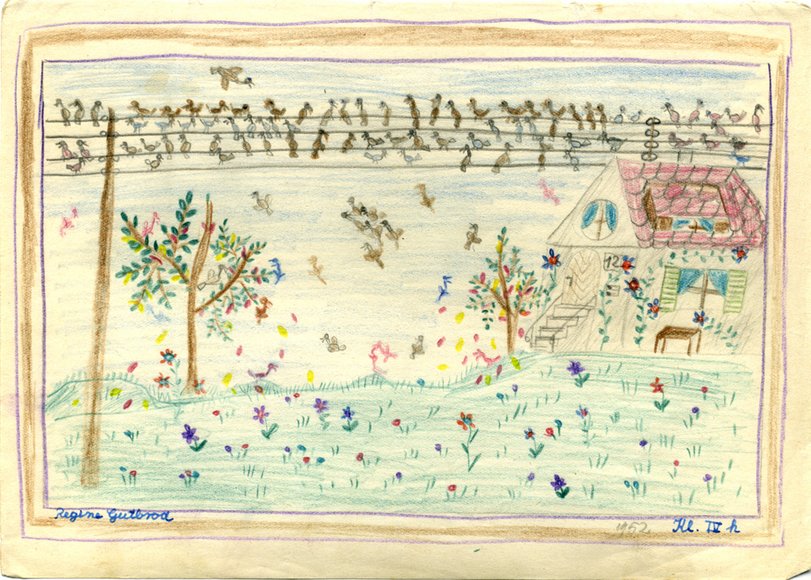 12
Regine Gutbrod
1952 Kl. IV h